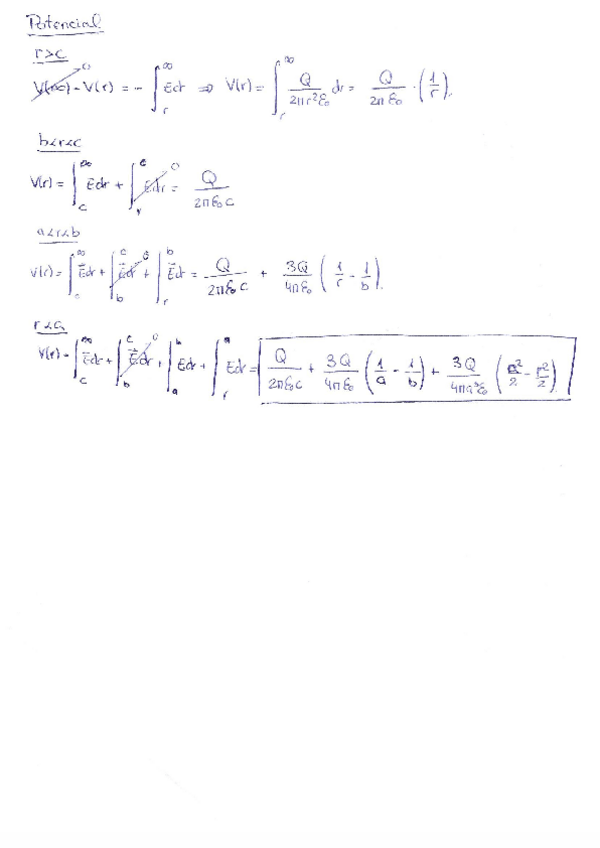 Potencial
r>c
V(∞) - V(r) = - ∫_r^∞ E dr ⇒ V(r) = ∫_r^∞ Q/(2πr²ε₀) dr = Q/(2πε₀) · (1/r).
b<r<c
V(r) = ∫_c^∞ E dr + ∫_r^c E dr = Q/(2πε₀c)
a<r<b
V(r) = ∫_c^∞ E dr + ∫_b^c E dr + ∫_r^b E dr = Q/(2πε₀c) + 3Q/(4πε₀) (1/r - 1/b).
r<a
V(r) = ∫_c^∞ E dr + ∫_b^c E dr + ∫_a^b E dr + ∫_r^a E dr = Q/(2πε₀c) + 3Q/(4πε₀) (1/a - 1/b) + 3Q/(4πa³ε₀) (a²/2 - r²/2).